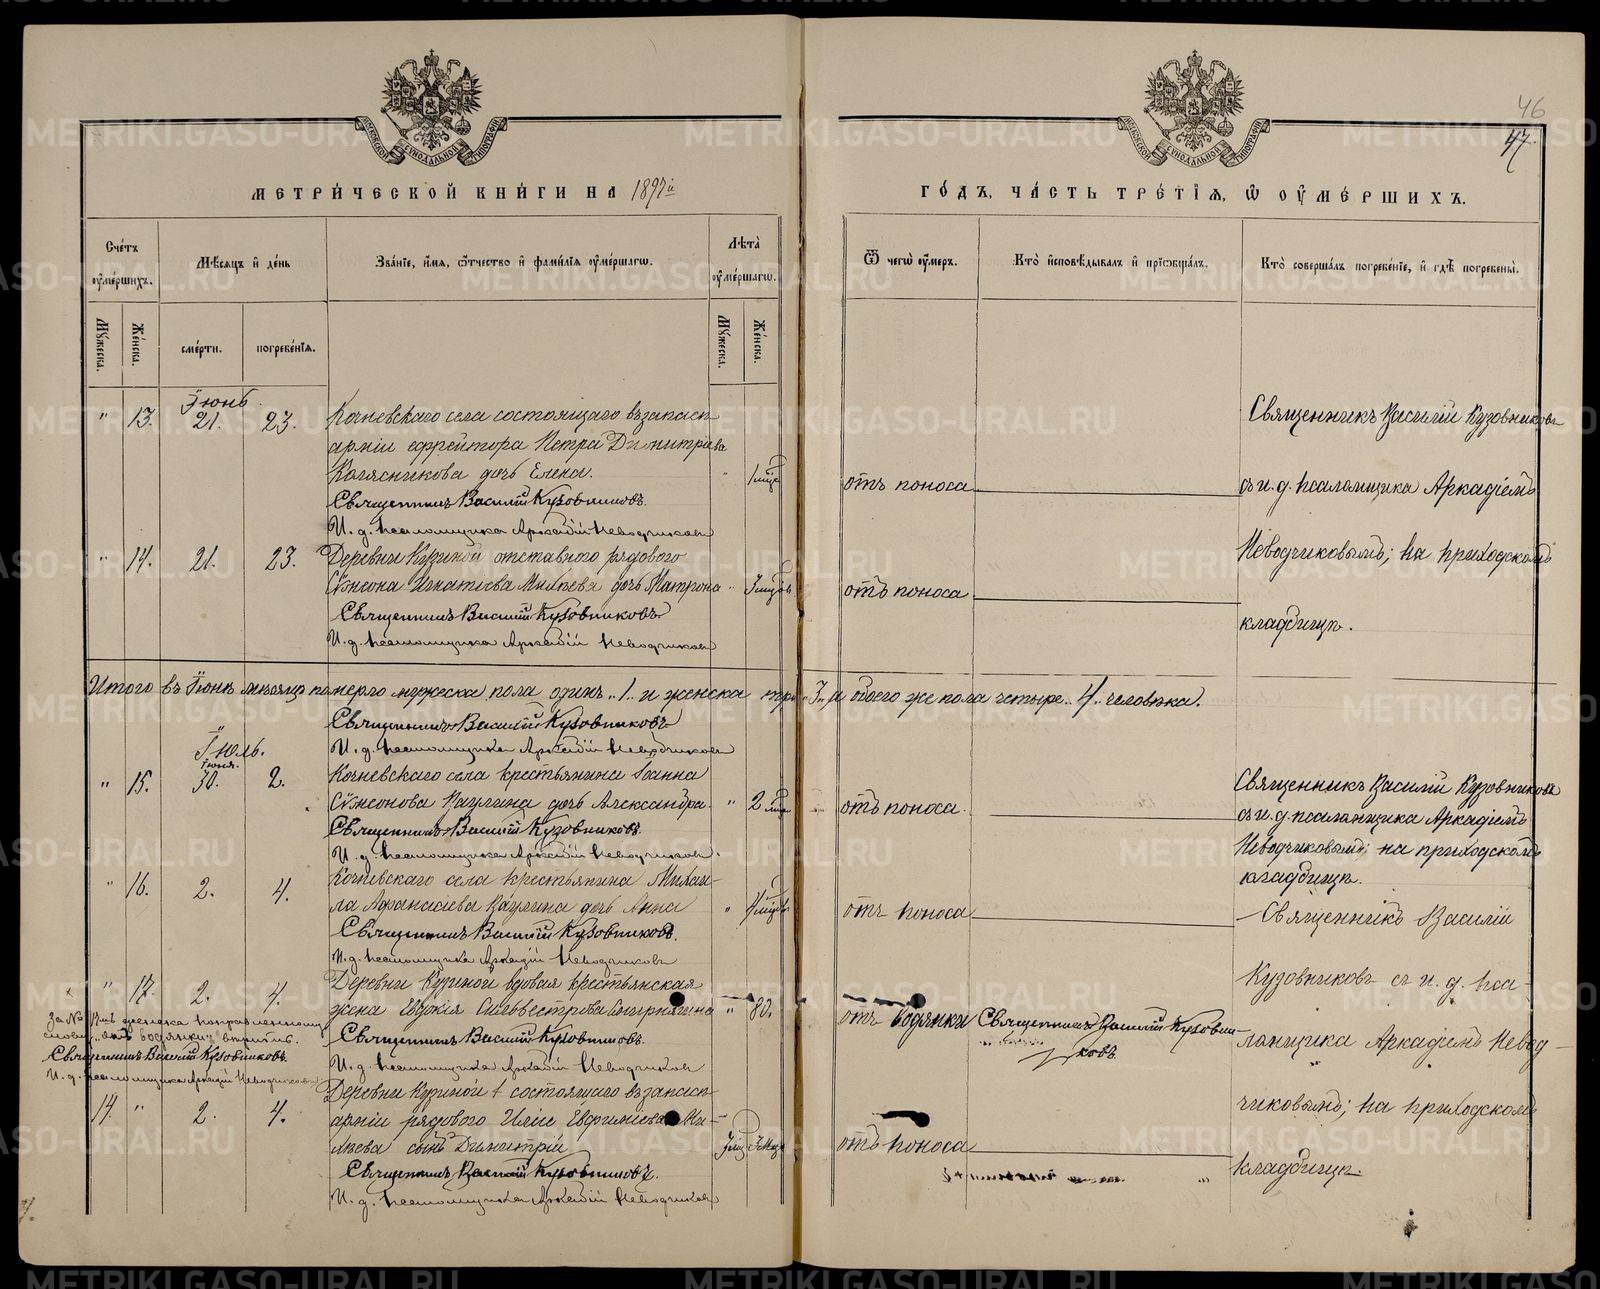 46
47
МЕТРИЧЕСКОЙ КНИГИ НА 1897й
ГОДЪ, ЧАСТЬ ТРЕТІЯ, Ѡ ОУМЕРШИХЪ.
Счетъ оумершихъ.
Мѣсяцъ и день
Званіе, имя, отчество и фамилія оумершагѡ.
Лѣта оумершагѡ.
Ѿ чегѡ оумеръ.
Кто исповѣдывалъ и пріѡбщалъ.
Кто совершалъ погребеніе, и гдѣ погребены.
Мужеска.
Женска.
смерти.
погребенія.
Мужеска.
Женска.
Іюнь
" 13. 21. 23. Кочневскаго села состоящаго въ запасѣ
арміи ефрейтора Петра Димитріева
дочь Елена. " 1 мѣс
Священникъ Василій Кузовниковъ.
И. д. псаломщика Аркадій Неводчиковъ
отъ поноса
Священникъ Василій Кузовниковъ
съ и. д. псаломщика Аркадіемъ
Неводчиковымъ; на приходскомъ
кладбищѣ.
" 14. 21. 23. Деревни Куриной отставного рядового
Сѷмеона Игнатіева Михѣева дочь Матрона " 3 мѣсцов
Священникъ Василій Кузовниковъ
И. д. псаломщика Аркадій Неводчиковъ
отъ поноса
Итого въ Іюнѣ мѣсяцѣ померло мужеска пола одинъ "1" и женска три "3", а обоего же пола четыре "4" человѣка.
Священникъ Василій Кузовниковъ
И. д. псаломщика Аркадій Неводчиковъ
Іюль.
Іюня.
" 15. 30. 2. Кочневскаго села крестьянина Іоанна
Сѷмеонова дочь Александра " 2 мѣс
Священникъ Василій Кузовниковъ.
И. д. псаломщика Аркадій Неводчиковъ.
отъ поноса.
Священникъ Василій Кузовниковъ
съ и. д. псаломщика Аркадіемъ
Неводчиковымъ; на приходскомъ
кладбищѣ.
" 16. 2. 4. Кочневскаго села крестьянина Михаи-
ла Афанасіева дочь Анна " 4 мѣсцов
Священникъ Василій Кузовниковъ.
И. д. псаломщика Аркадій Неводчиковъ
отъ поноса
Священникъ Василій
Кузовниковъ съ и. д. пса-
ломщика Аркадіемъ Невод-
чиковымъ; на приходскомъ
кладбищѣ.
" 17. 2. 4. Деревни Куриной вдовая крестьянская
жена Евдокія Сильвестрова " 80.
Священникъ Василій Кузовниковъ.
И. д. псаломщика Аркадій Неводчиковъ
отъ водянки
Священникъ Василій Кузовни-
ковъ
За № 17мъ поправленному
"отъ водянки" вѣрить.
Священникъ Василій Кузовниковъ.
И. д. псаломщика Аркадій Неводчиковъ
14. " 2. 4. Деревни Куриной состоящаго въ запасѣ
арміи рядового Иліи Евфиміева Ми-
хѣева сынъ Димитрій
Священникъ Василій Кузовниковъ.
И. д. псаломщика Аркадій Неводчиковъ
отъ поноса
METRIKI.GASO-URAL.RU